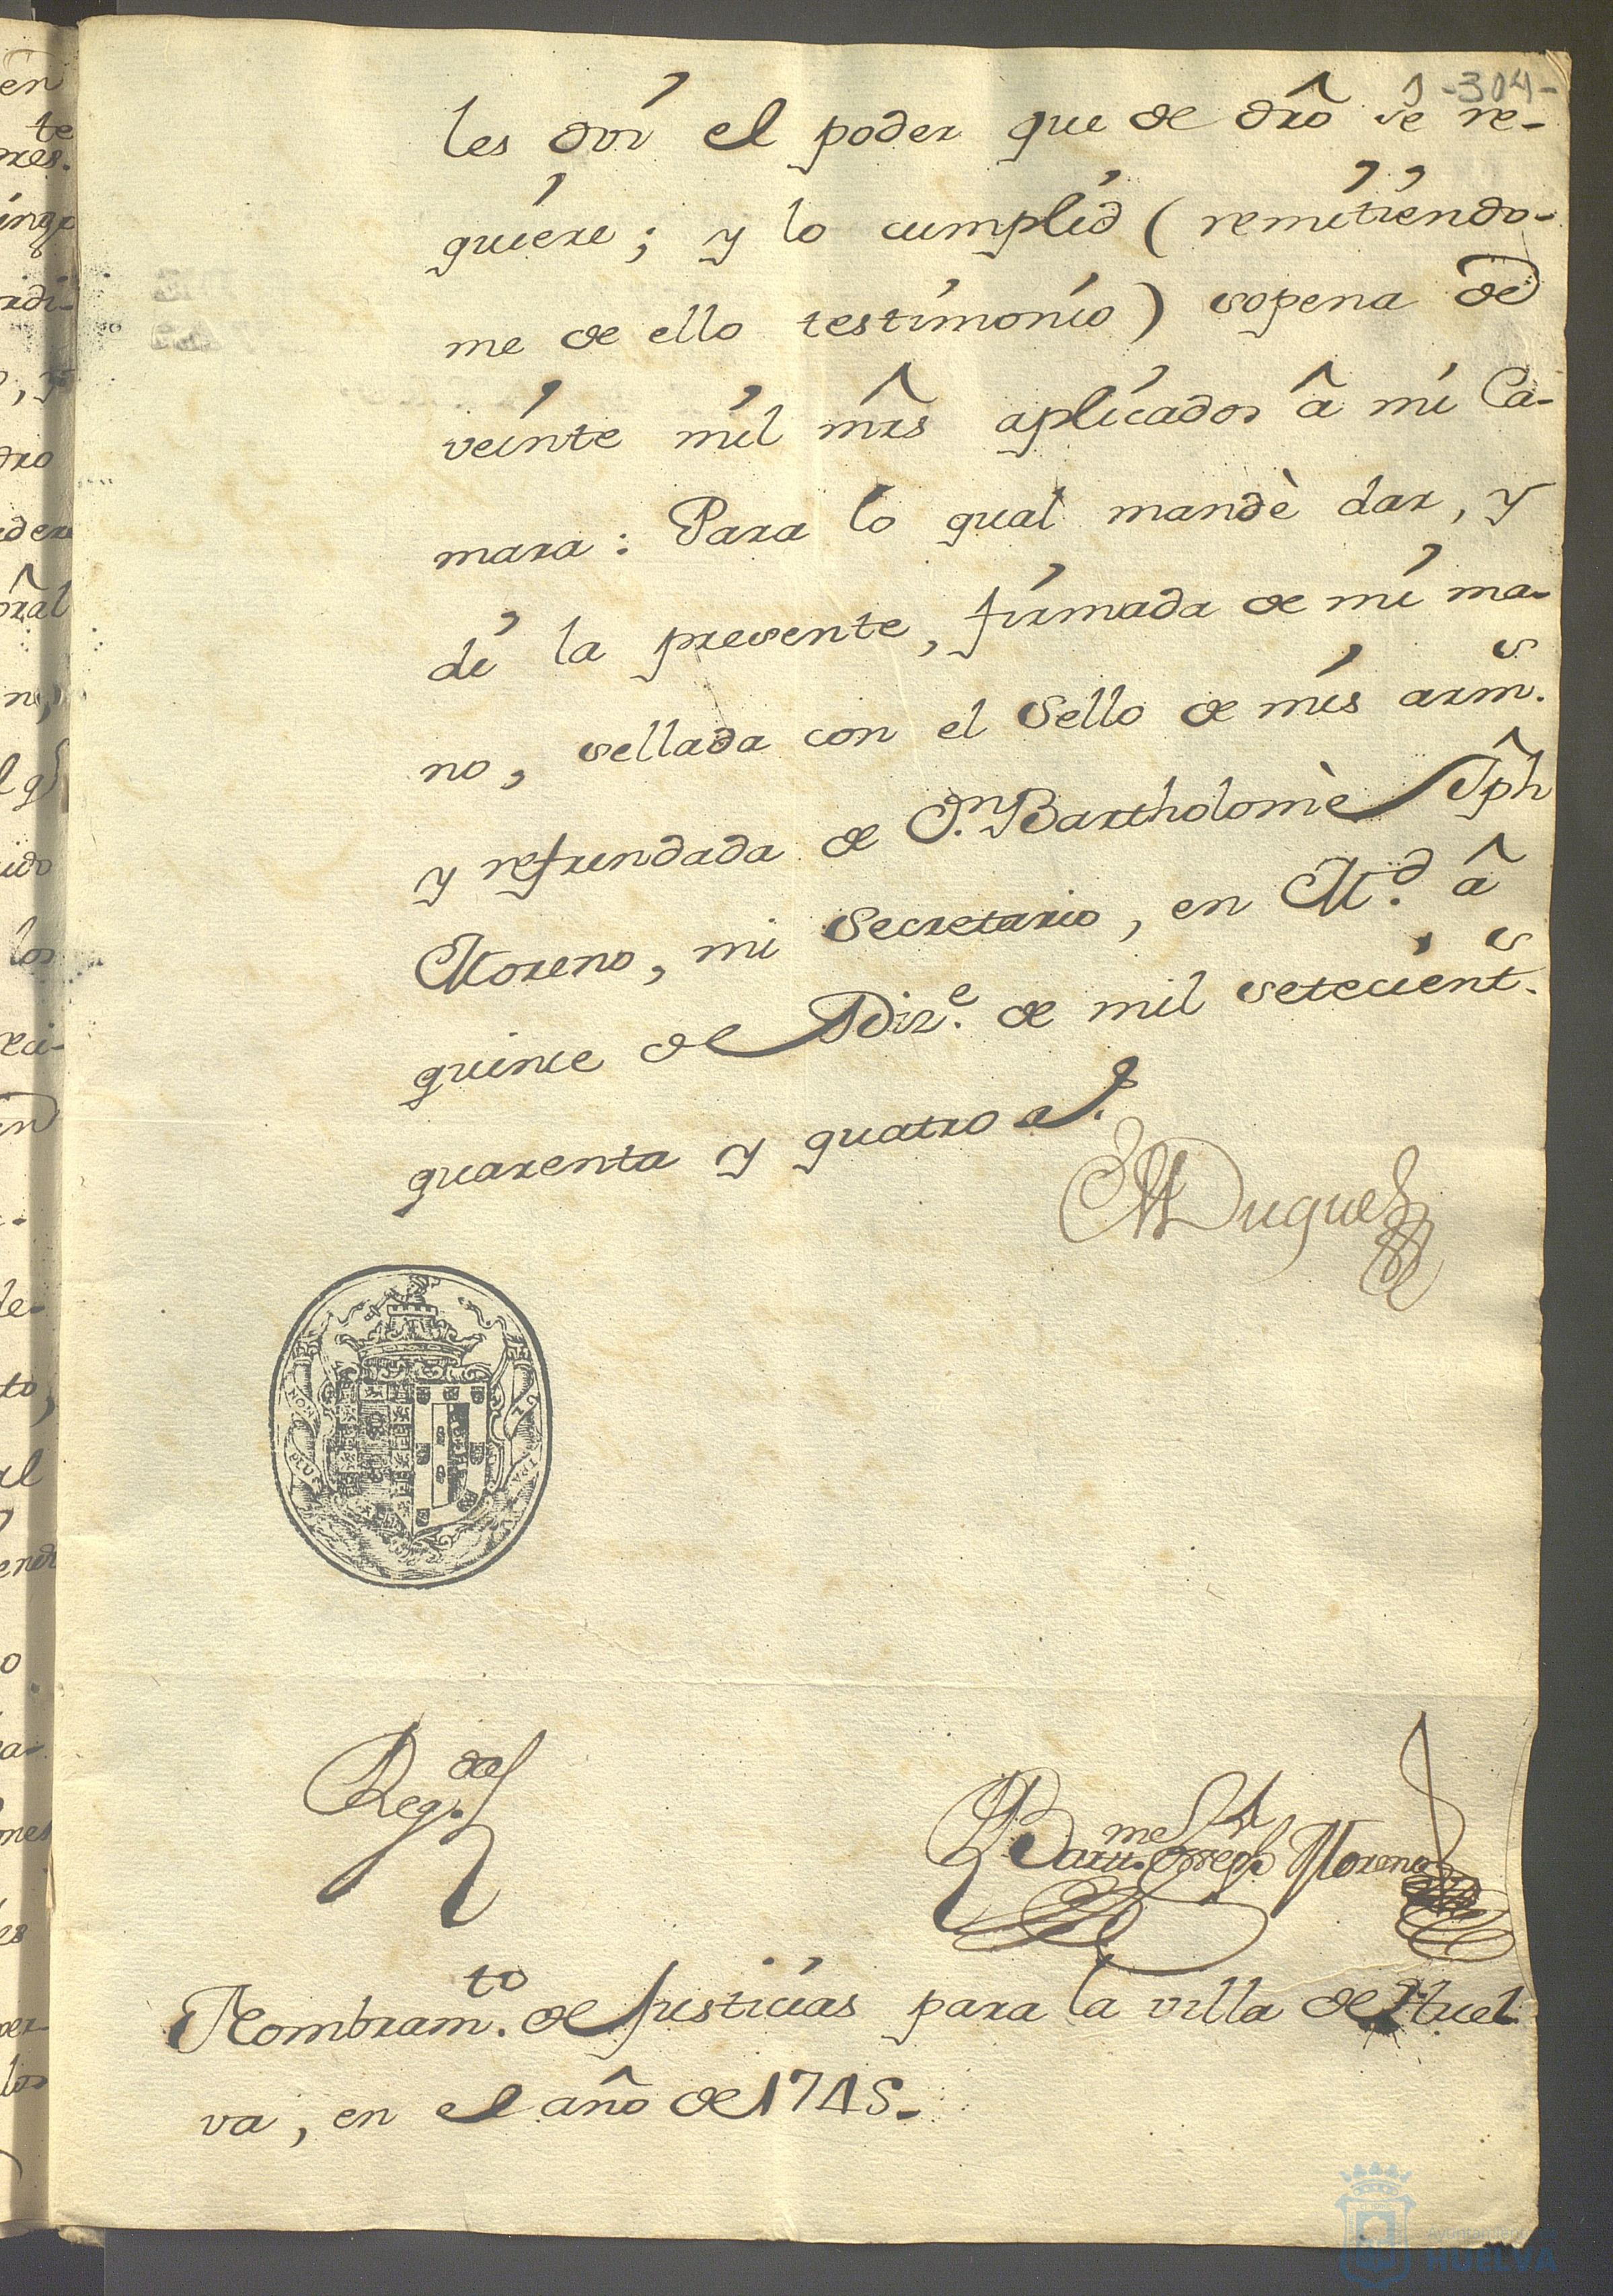 -304-
les doi el poder que de dr̂o se re-
quiere; y lo cumplid (remitiendo-
me de ello testimonio) sopena de
veinte mil mr̂s aplicados â mi Ca-
mara: Para lo qual mandè dar, y
di la presente, firmada de mi ma-
no, sellada con el Sello de mis arm.s
y refrendada de D.n Bartholomè Jp̂h
Moreno, mi Secretario, en M.d â
quince de Diz.e de mil setecient.s
quarenta y quatro a.s
El Duque
NON PLUS
Reg.do
Bartt.me Joseph Moreno
Nombram.to de Justicias para la villa de Huel
va, en el año de 1745.
Ayuntamiento de
HUELVA